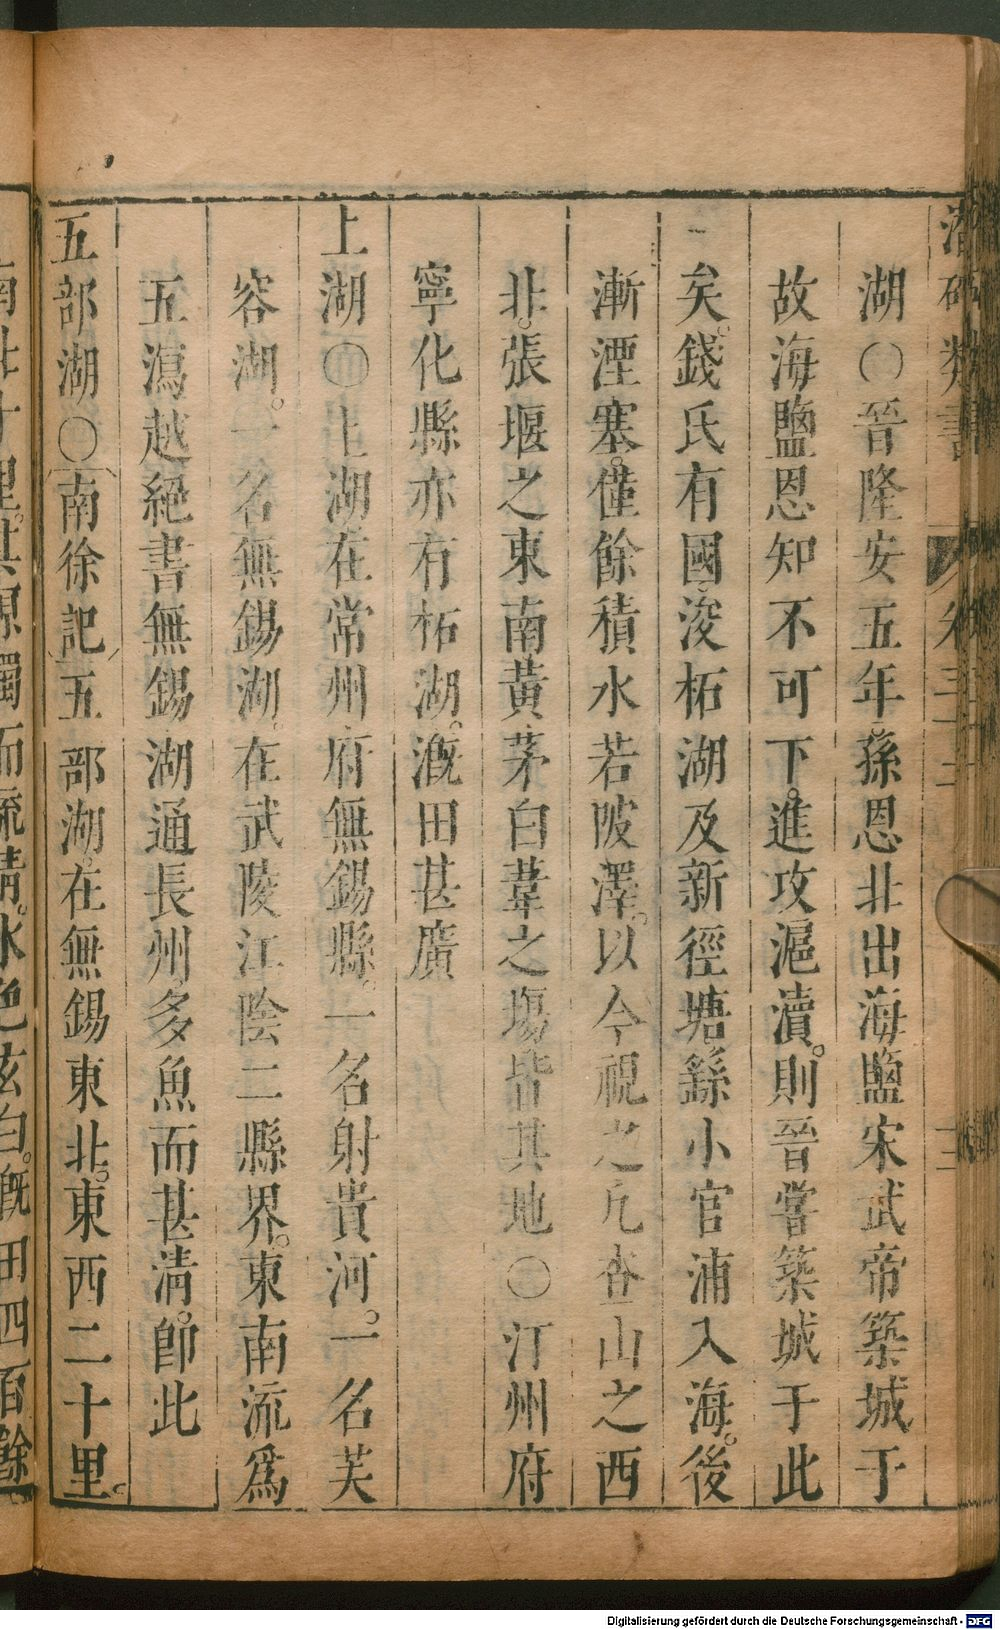 湖〇晉隆安五年孫恩北出海鹽宋武帝築城于
故海鹽恩知不可下。進攻滬瀆。則晉嘗築城于此
矣。錢氏有國浚柘湖及新徑塘繇小官浦入海。後
漸湮塞。僅餘積水若陂澤。以今視之凡查山之西
北。張堰之東南黃茅白葦之場皆其地〇汀州府
寧化縣亦有柘湖。溉田甚廣
上湖〇上湖在常州府無錫縣。一名射貴河。一名芙
容湖。一名無錫湖。在武陵江陰二縣界。東南流爲
五瀉越絕書無錫湖通長州。多魚而甚清。卽此
五部湖〇南徐記五部湖。在無錫東北。東西二十里。
里。其源濁而流清。水色玄白。溉田四百餘
Digitalisierung gefördert durch die Deutsche Forschungsgemeinschaft - DFG